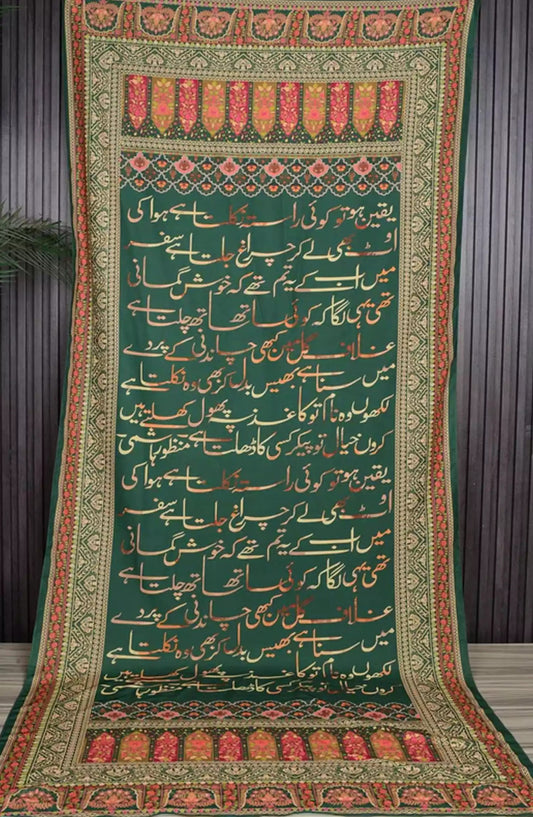 یقین ہو تو کوئی راستہ نکلتا ہے ہوا کی
اوٹ بھی لے کر چراغ جلتا ہے سفر
میں اب کے یہ تم تھے کہ خوش گمانی
تھی یہی لگا کہ کوئی ساتھ ساتھ چلتا ہے
غلاف گل میں کبھی چاندنی کے پردے
میں سنا ہے بھیس بدل کر بھی وہ نکلتا ہے
لکھوں وہ نام تو کاغذ پہ پھول کھلتے ہیں
کروں خیال تو پیکر کسی کا ڈھلتا ہے منظور ہاشمی
یقین ہو تو کوئی راستہ نکلتا ہے ہوا کی
اوٹ بھی لے کر چراغ جلتا ہے سفر
میں اب کے یہ تم تھے کہ خوش گمانی
تھی یہی لگا کہ کوئی ساتھ ساتھ چلتا ہے
غلاف گل میں کبھی چاندنی کے پردے
میں سنا ہے بھیس بدل کر بھی وہ نکلتا ہے
لکھوں وہ نام تو کاغذ پہ پھول کھلتے ہیں
کروں خیال تو پیکر کسی کا ڈھلتا ہے منظور ہاشمی